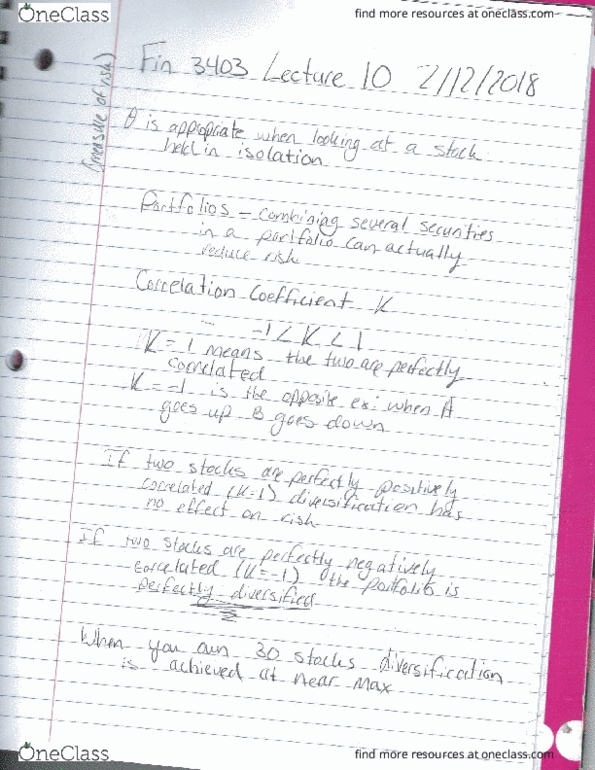 OneClass
find more resources at oneclass.com
Fin 3403 Lecture 10 2/12/2018
(measure of risk)
θ is appropriate when looking at a stock
held in isolation
Portfolios – combining several securities
in a portfolio can actually
reduce risk
Correlation Coefficient K
-1 < K < 1
K = 1 means the two are perfectly
correlated
K = -1 is the opposite ex: when A
goes up B goes down
If two stocks are perfectly positively
correlated (K=1) diversification has
no effect on risk
If two stocks are perfectly negatively
correlated (K=-1) the portfolio is
perfectly diversified
When you own 30 stocks diversification
is achieved at near max
OneClass
find more resources at oneclass.com